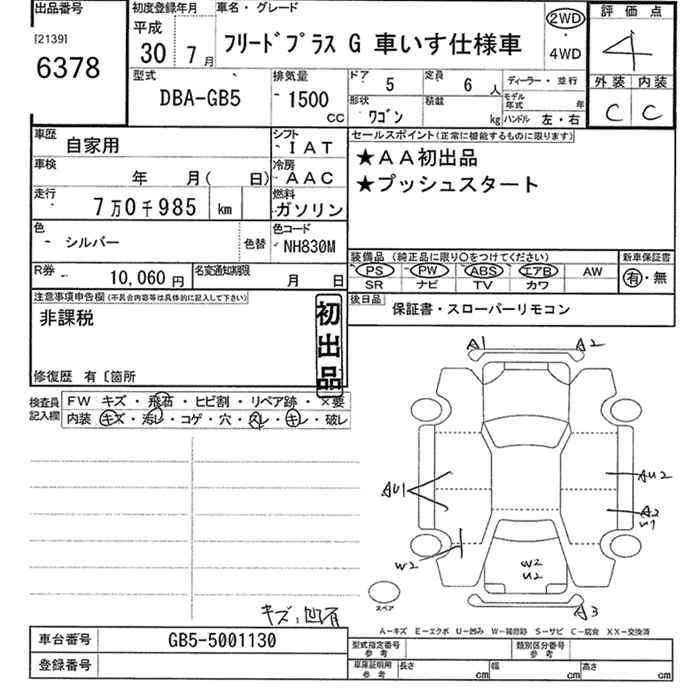 出品番号 初度登録年月 車名・グレード 評価点
[2139] 6378 平成 30 7月 フリードプラス G 車いす仕様車 2WD ・ 4WD 4
型式 DBA-GB5 排気量 1500 CC ドア 5 定員 6人 ディーラー・並行 外装 内装
形状 ワゴン 積載 kg モデル年式 年 ハンドル 左・右 C C
車歴 自家用 シフト IAT セールスポイント(正常に機能するものに限ります)
車検 年 月( 日) 冷房 AAC ★AA初出品
走行 7万0千985 km 燃料 ガソリン ★プッシュスタート
色 シルバー 色替 色コード NH830M
装備品(純正品に限り○をつけてください) 新車保証書
R券 10,060円 名変通知期限 月 日 PS PW ABS エアB AW 有・無
SR ナビ TV カワ
注意事項申告欄(不具合内容等は具体的に記入して下さい) 後日品 保証書・スローパーリモコン
非課税 初出品
修復歴 有〔箇所
検査員記入欄 FW キズ・飛石・ヒビ割・リペア跡・×要
内装 キズ・汚レ・コゲ・穴・スレ・キレ・破レ
A1 A2
AU1 AU2
A2 U1
W2 W2 U2
スペア A3
キズ,凹有
A−キズ E−エクボ U−凹み W−補修跡 S−サビ C−腐食 XX−交換済
車台番号 GB5-5001130 型式指定番号 参考 類別区分番号 参考
登録番号 車庫証明用 参考 長さ cm 幅 cm 高さ cm